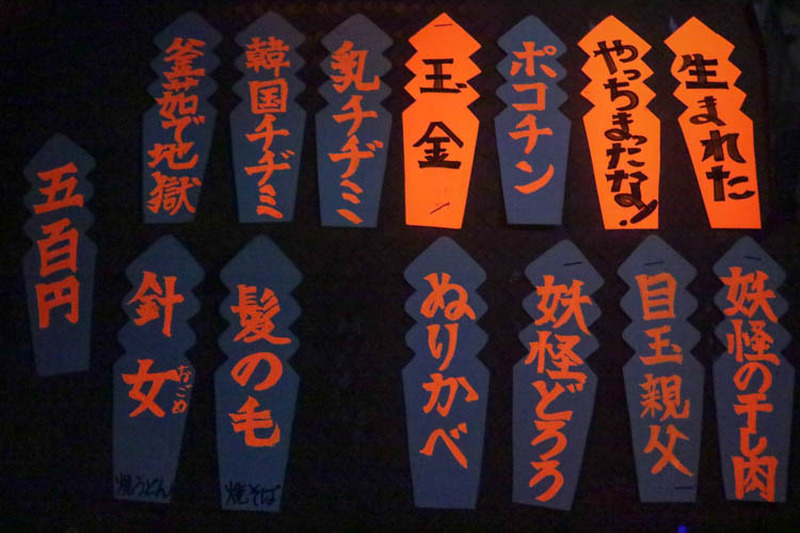 生まれた
やっちまったな!
ポコチン
玉金
乳チヂミ
韓国チヂミ
釜茹で地獄
妖怪の干し肉
目玉親父
妖怪どろろ
ぬりかべ
髪の毛
焼そば
針女
焼うどん
五百円